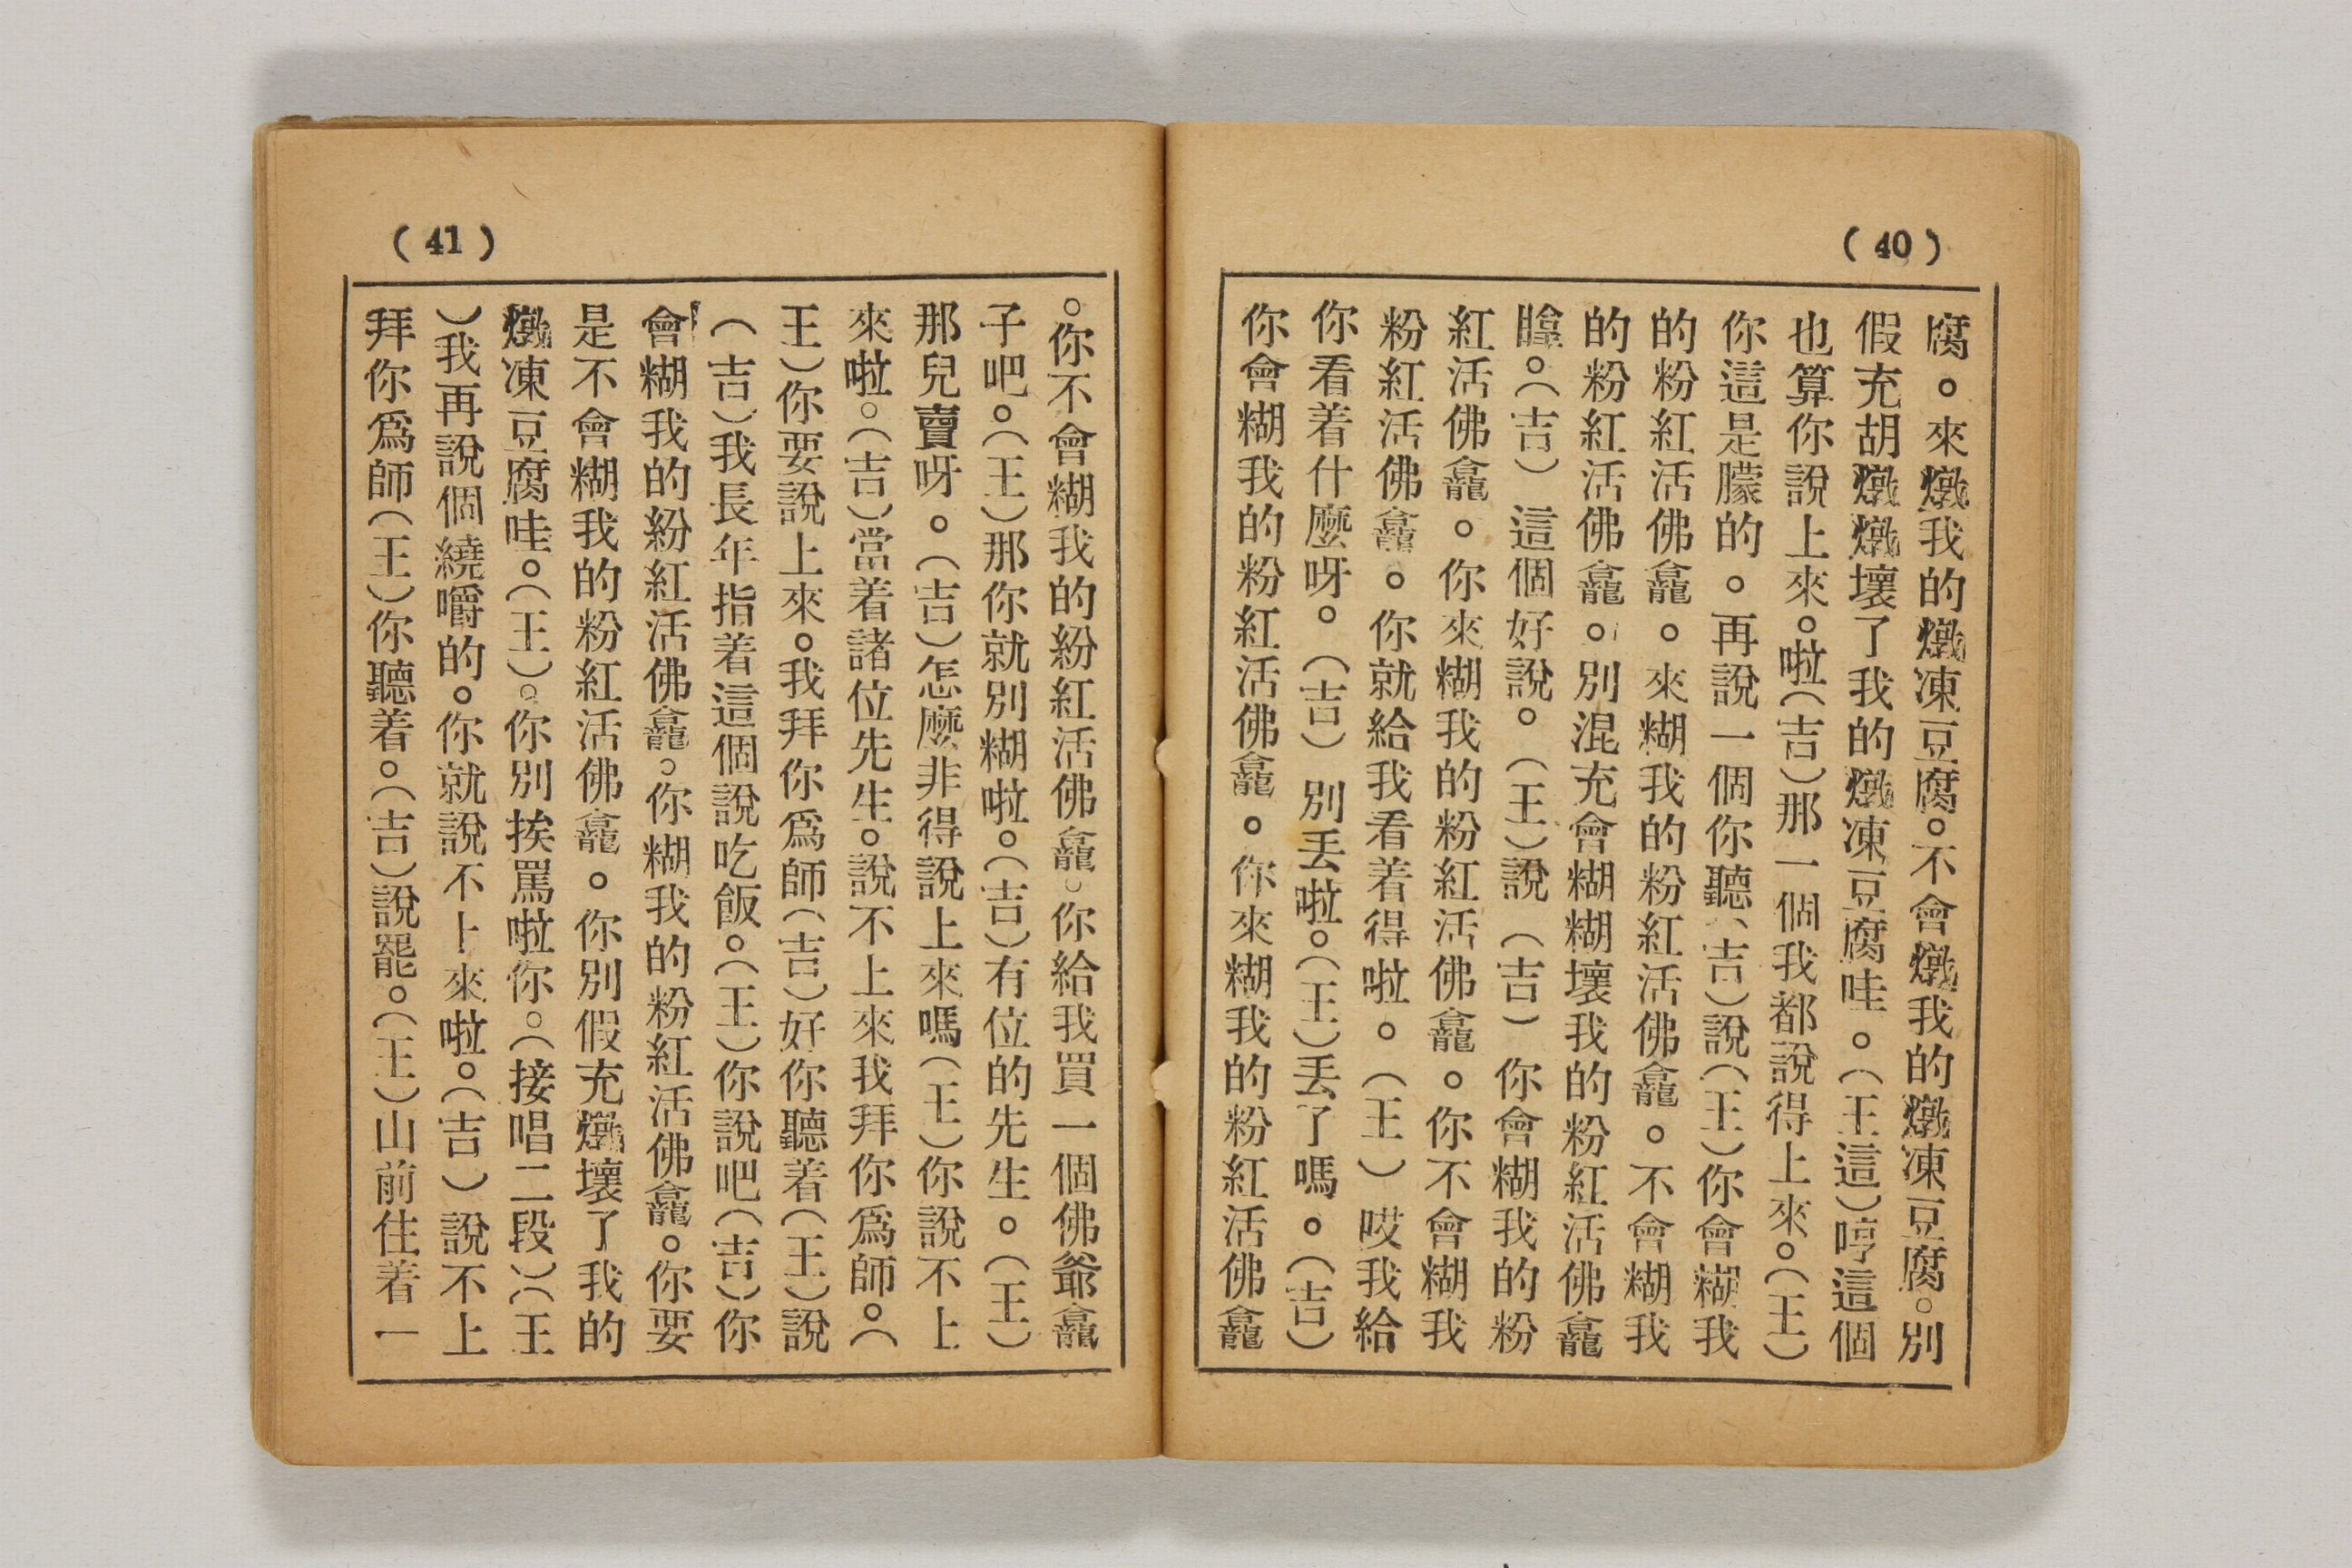 ( 40 )
腐。來燉我的燉凍豆腐。不會燉我的燉凍豆腐。別
假充胡燉燉壞了我的燉凍豆腐哇。(王這)哼這個
也算你說上來。啦(吉)那一個我都說得上來。(王)
你這是朦的。再說一個你聽、吉)說(王)你會糊我
的粉紅活佛龕。來糊我的粉紅活佛龕。不會糊我
的粉紅活佛龕。別混充會糊糊壞我的粉紅活佛龕
瞎。(吉)這個好說。(王)說(吉)你會糊我的粉
紅活佛龕。你來糊我的粉紅活佛龕。你不會糊我
粉紅活佛龕。你就給我看着得啦。(王)哎我給
你看着什麼呀。(吉)別丟啦。(王)丟了嗎。(吉)
你會糊我的粉紅活佛龕。你來糊我的粉紅活佛龕
( 41 )
。你不會糊我的紛紅活佛龕。你給我買一個佛爺龕
子吧。(王)那你就別糊啦。(吉)有位的先生。(王)
那兒賣呀。(吉)怎麼非得說上來嗎(王)你說不上
來啦。(吉)當着諸位先生。說不上來我拜你爲師。(
王)你要說上來。我拜你爲師(吉)好你聽着(王)說
(吉)我長年指着這個說吃飯。(王)你說吧(吉)你
會糊我的紛紅活佛龕。你糊我的粉紅活佛龕。你要
是不會糊我的粉紅活佛龕。你別假充燉壞了我的
燉凍豆腐哇。(王)。你別挨罵啦你。(接唱二段)(王
)我再說個繞嚼的。你就說不上來啦。(吉)說不上
拜你爲師(王)你聽着。(吉)說罷。(王)山前住着一